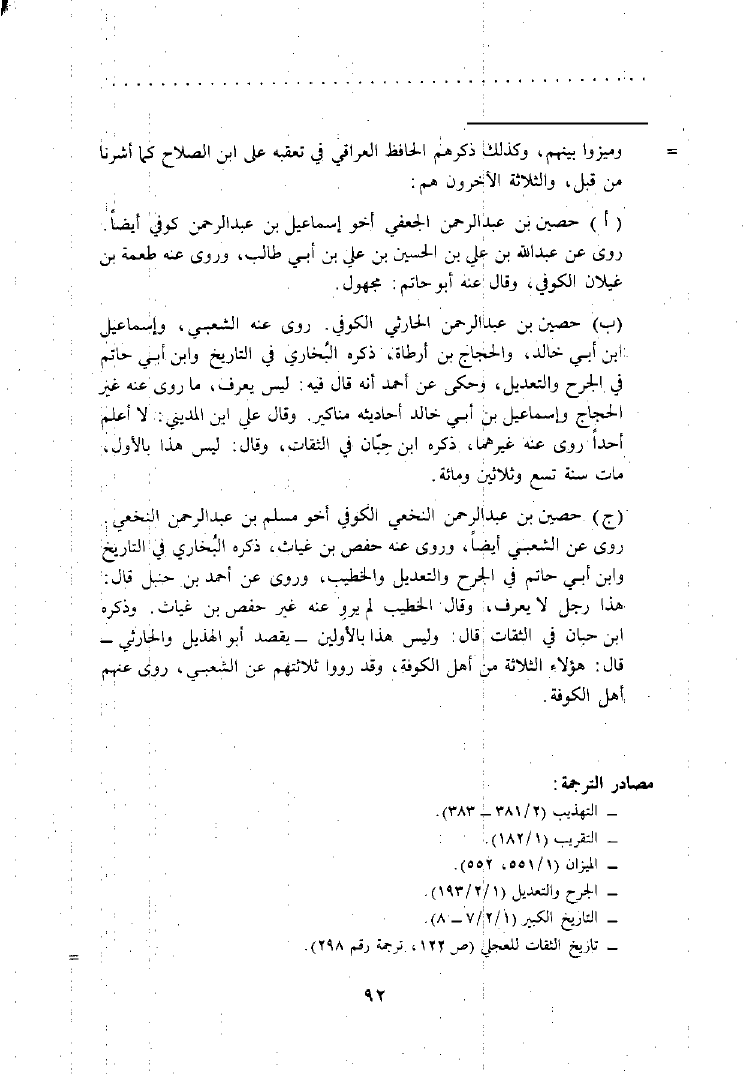 = وميزوا بينهم، وكذلك ذكرهم الحافظ العراقي في تعقبه على ابن الصلاح كما أشرنا
من قبل، والثلاثة الآخرون هم:
( أ ) حصين بن عبدالرحمن الجعفي أخو إسماعيل بن عبدالرحمن كوفي أيضاً.
روى عن عبدالله بن علي بن الحسين بن علي بن أبي طالب، وروى عنه طعمة بن
غيلان الكوفي، وقال عنه أبو حاتم: مجهول.
(ب) حصين بن عبدالرحمن الحارثي الكوفي. روى عنه الشعبي، وإسماعيل
ابن أبي خالد، والحجاج بن أرطاة، ذكره البُخاري في التاريخ وابن أبي حاتم
في الجرح والتعديل، وحكى عن أحمد أنه قال فيه: ليس يعرف، ما روى عنه غير
الحجاج وإسماعيل بن أبي خالد أحاديثه مناكير. وقال علي ابن المديني: لا أعلم
أحداً روى عنه غيرهما، ذكره ابن حِبّان في الثقات، وقال: ليس هذا بالأول،
مات سنة تسع وثلاثين ومائة.
(ج) حصين بن عبدالرحمن النخعي الكوفي أخو مسلم بن عبدالرحمن النخعي.
روى عن الشعبي أيضاً، وروى عنه حفص بن غياث، ذكره البُخاري في التاريخ
وابن أبي حاتم في الجرح والتعديل والخطيب، وروى عن أحمد بن حنبل قال:
هذا رجل لا يعرف، وقال الخطيب لم يرو عنه غير حفص بن غياث. وذكره
ابن حبان في الثقات قال: وليس هذا بالأولين ــ يقصد أبو الهذيل والحارثي ــ
قال: هؤلاء الثلاثة من أهل الكوفة، وقد رووا ثلاثتهم عن الشعبي، روى عنهم
أهل الكوفة.
مصادر الترجمة:
ــ التهذيب (٣٨١/٢ ــ ٣٨٣).
ــ التقريب (١٨٢/١).
ــ الميزان (٥٥١/١، ٥٥٢).
ــ الجرح والتعديل (١٩٣/٢/١).
ــ التاريخ الكبير (٧/٢/١ ــ ٨).
ــ تاريخ الثقات للعجلي (ص ١٢٢، ترجمة رقم ٢٩٨).
=
٩٢